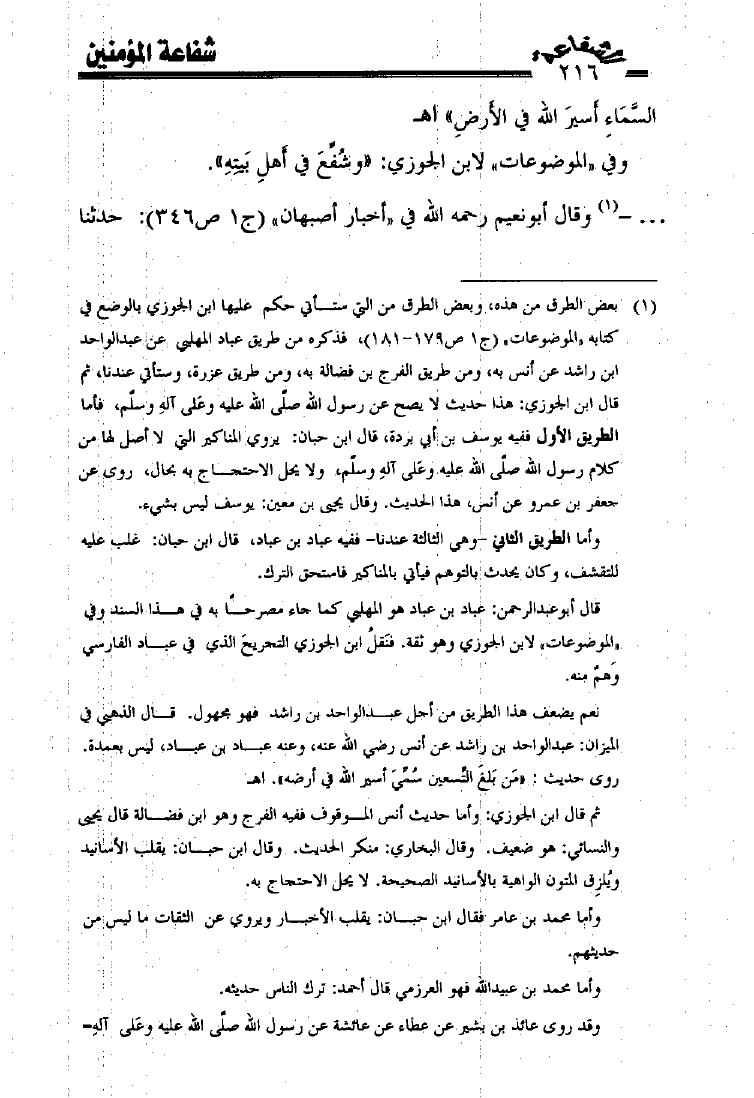 الشفاعة
شفاعة المؤمنين
٢١٦
السَّمَاءِ أَسيرَ الله في الأَرضِ» اهـ
وفي «الموضوعات» لابن الجوزي: «وشُفِّعَ في أَهلِ بَيتِهِ».
... –(١) وقال أبونعيم رحمه الله في «أخبار أصبهان» (ج١ ص٣٤٦): حدثنا
(١) بعض الطرق من هذه، وبعض الطرق من التي ستـأتي حكم عليها ابن الجوزي بالوضع في
كتابه «الموضوعات» (ج١ ص١٧٩–١٨١)، فذكره من طريق عباد المهلبي عن عبدالواحد
ابن راشد عن أنس به، ومن طريق الفرج بن فضالة به، ومن طريق عزرة، وستأتي عندنا، ثم
قال ابن الجوزي: هذا حديث لا يصح عن رسول الله صلّى الله عليه وعَلى آلهِ وسلّم، فأما
الطريق الأول ففيه يوسف بن أبي بردة، قال ابن حبان: يروي المناكير التي لا أصل لها من
كلام رسول الله صلّى الله عليه وعَلى آلهِ وسلّم، ولا يحل الاحتجـاج به بحال، روى عن
جعفر بن عمرو عن أنس، هذا الحديث. وقال يحيى بن معين: يوسف ليس بشيء.
وأما الطريق الثاني –وهي الثالثة عندنا– ففيه عباد بن عباد، قال ابن حبان: غلب عليه
للتقشف، وكان يحدث بالتوهم فيأتي بالمناكير فاستحق الترك.
قال أبوعبدالرحمن: عباد بن عباد هو المهلبي كما جاء مصرحـًا به في هـذا السند وفي
«الموضوعات» لابن الجوزي وهو ثقة. فنَقلُ ابن الجوزي التجريحَ الذي في عبـاد الفارسي
وَهمٌ منه.
نعم يضعف هذا الطريق من أجل عبـدالواحد بن راشد فهو مجهول. قـال الذهبي في
الميزان: عبدالواحد بن راشد عن أنس رضي الله عنه، وعنه عبـاد بن عبـاد، ليس بعمدة.
روى حديث : «مَن بَلغَ التِّسعين سُمِّيَ أسير الله في أرضه». اهـ
ثم قال ابن الجوزي: وأما حديث أنس المـوقوف ففيه الفرج وهو ابن فضـالة قال يحيى
والنسائي: هو ضعيف. وقال البخاري: منكر الحديث. وقال ابن حبـان: يقلب الأسانيد
ويُلزِق المتون الواهية بالأسانيد الصحيحة. لا يحل الاحتجاج به.
وأما محمد بن عامر فقال ابن حبـان: يقلب الأخبـار ويروي عن الثقات ما ليس من
حديثهم.
وأما محمد بن عبيدالله فهو العرزمي قال أحمد: ترك الناس حديثه.
وقد روى عائذ بن بشير عن عطاء عن عائشة عن رسول الله صلّى الله عليه وعَلى آلهِ–